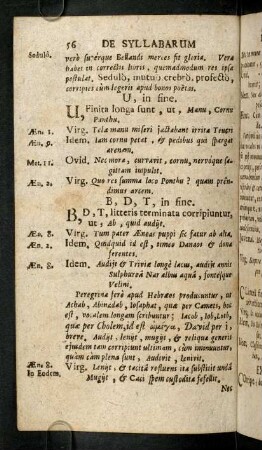 56 DE SYLLABARUM
Sedulò. verò superque Bellandi merces fit gloria. Vera
habet in correctis libris, quemadmodum res ipsa
postulat, Sedulò, mutuò crebrò, profectò,
corripies cùm legeris apud bonos poëtas.
U, in fine.
U, Finita longa sunt, ut, Manu, Cornu
Panthu,
Æn. 1. Virg. Tela manu miseri jactabant irrita Teucri
Æn. 9. Idem, Iam cornu petat, & pedibus qui spargat
arenam,
Met. 11. Ovid, Nec mora, curvavit, cornu, nervóque sa-
gittam impulit.
Æn. 2. Virg. Quo res summa loco Panthu? quam prên-
dimus arcem.
B, D, T, in fine.
B, D, T, litteris terminata corripiuntur,
ut, Ab, quid audijt.
Æn. 8. Virg. Tum pater Æneas puppi sic fatur ab alta,
Æn. 2. Idem, Quidquid id est, timeo Danaos & dona
ferentes.
Æn. 8. Idem, Audijt & Triviæ longè lacus, audijt amnis
Sulphureâ Nar albus aquâ, fontesque
Velini,
Peregrina ferè apud Hebræos producuntur, ut
Achab, Aminadab, Iosaphat, quæ per Camets, hoc
est, vocalem longam scribuntur; Iacob, Iob, Loth,
quæ per Cholem, id est David per i,
breve, Audijt, lenijt, mugijt, & reliqua generis
ejusdem tam corripiunt ultimam, cùm minuuntur,
quàm cùm plena sunt, Audivit, lenivit.
Æn. 8. Virg. Lenijt, & tacitâ refluens ita substitit undâ
In Eodem. Mugijt, & Caci spem custodita fefellit.
Nec